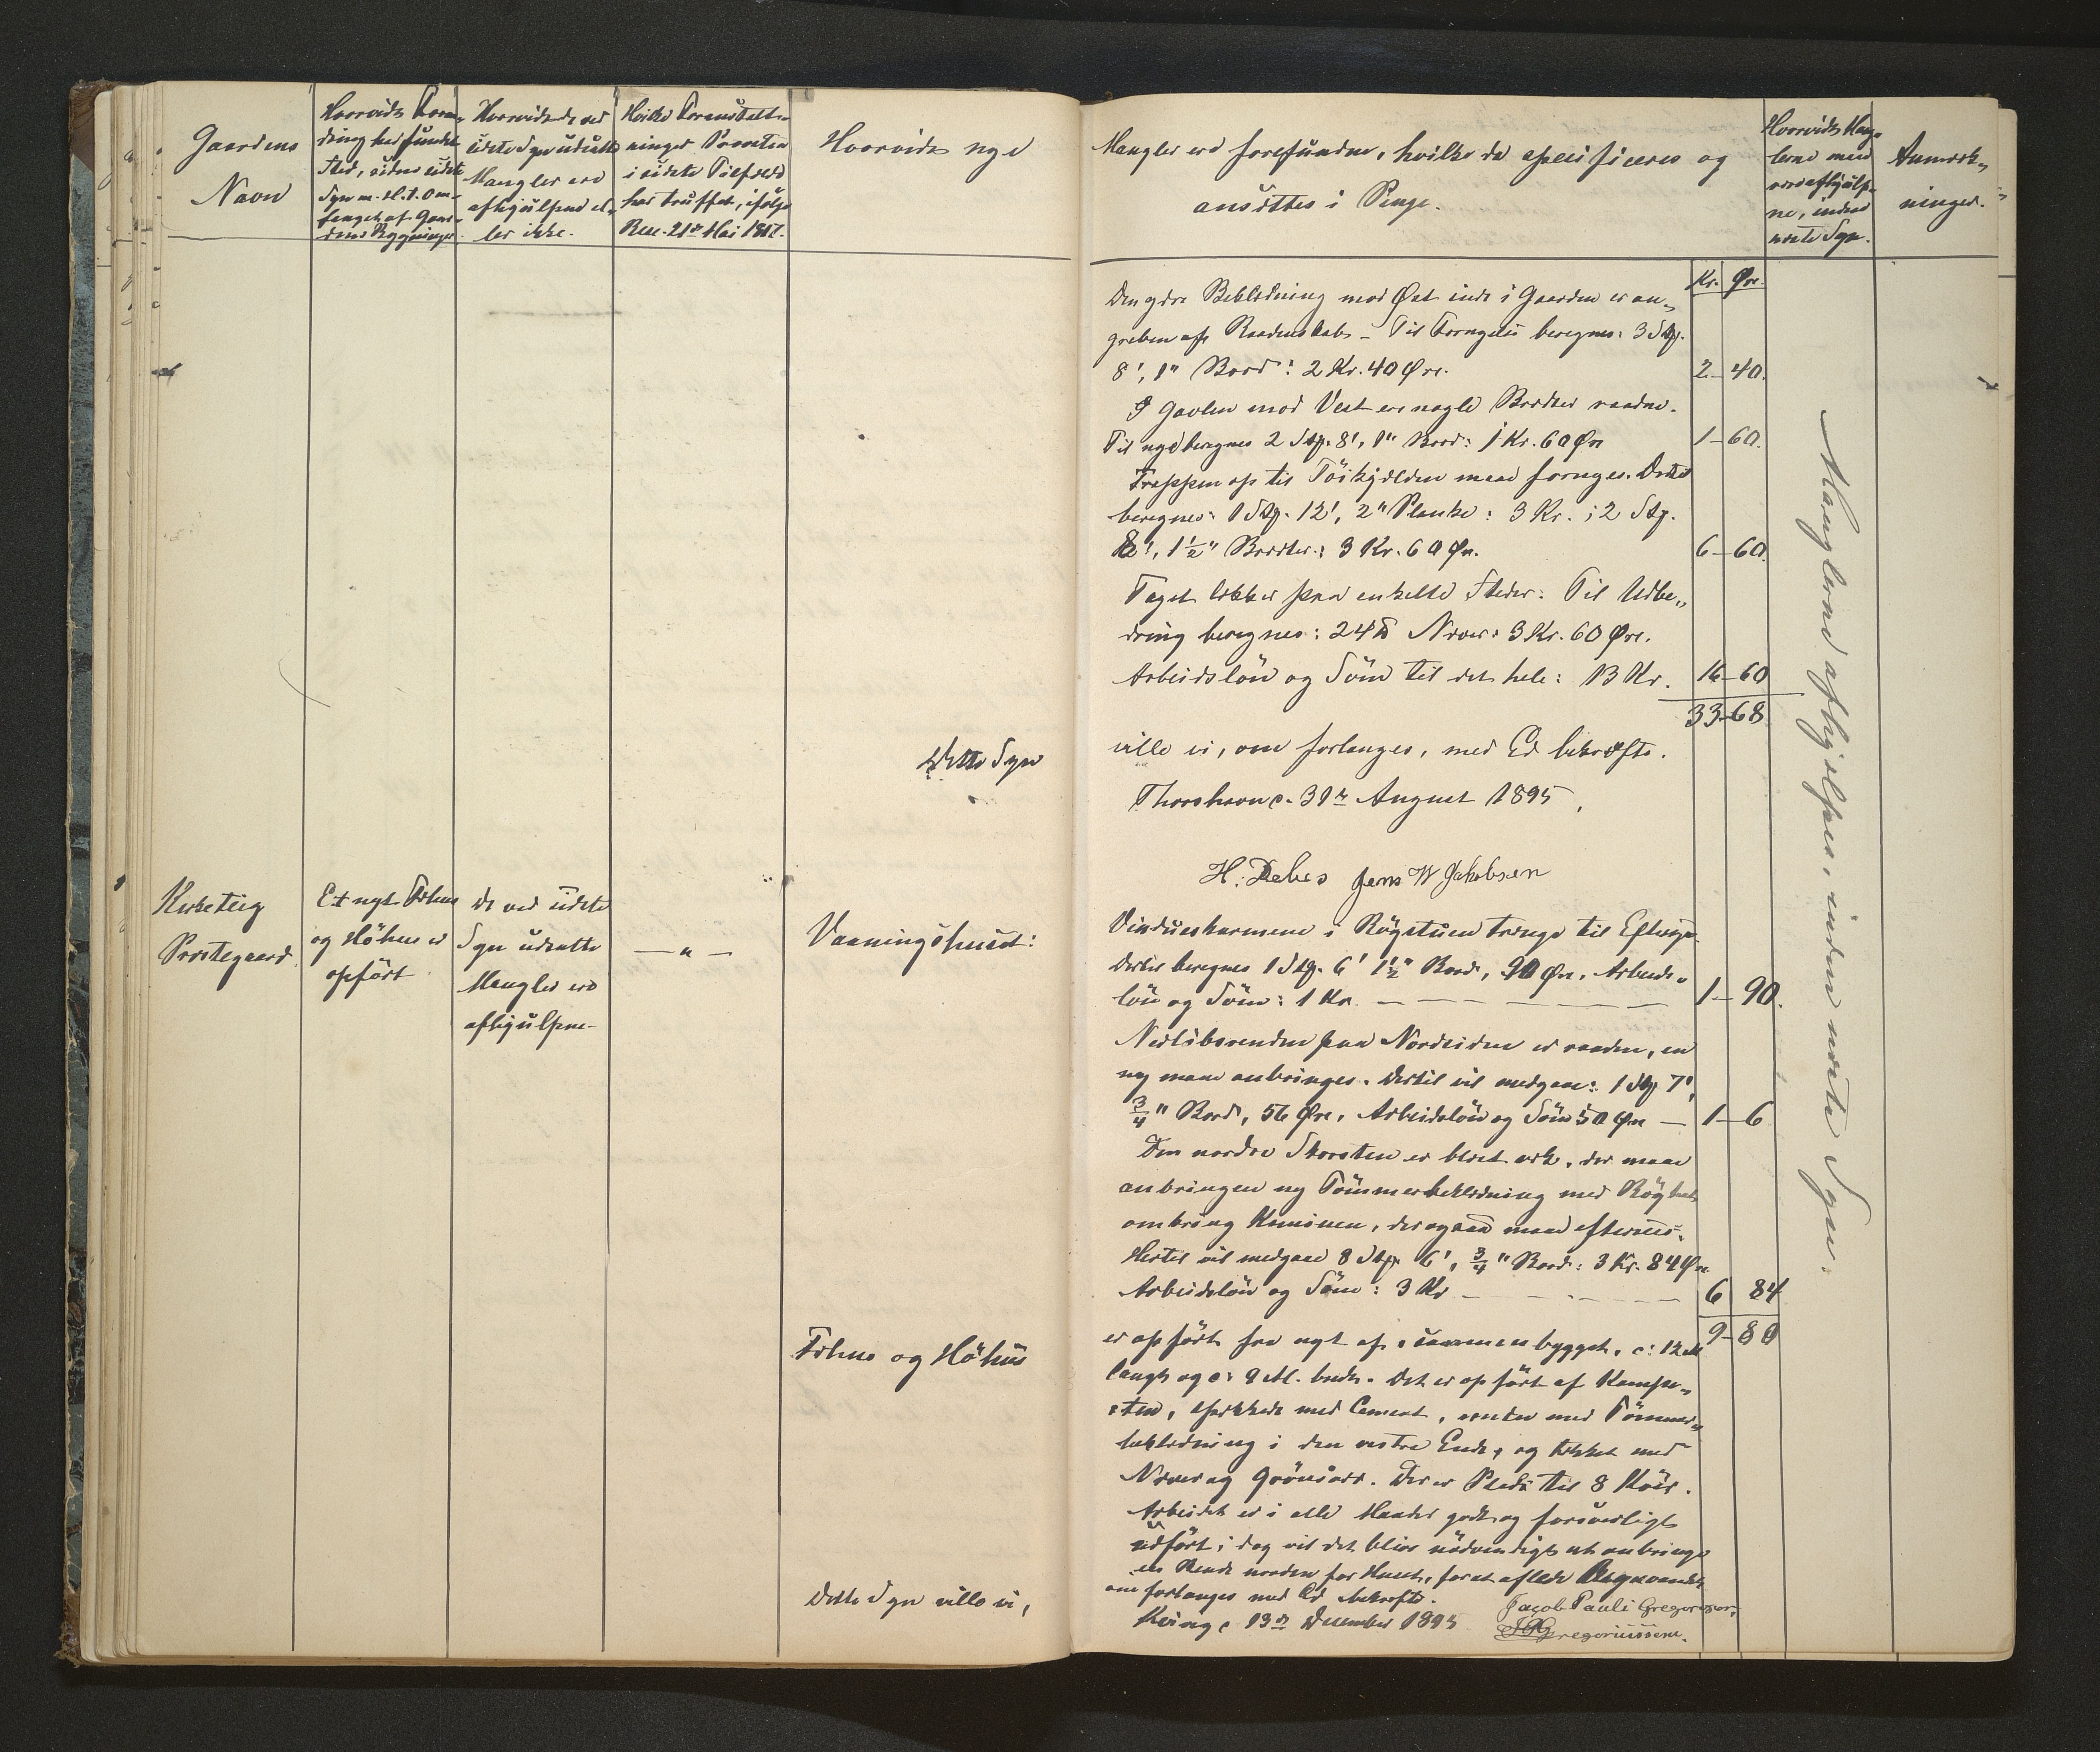 Gaardens
Navn
Hvorvidt Foran-
dring har fundet
Sted, siden sidste
Syn m. H. t. Om-
fanget af Gaar-
dens Bygninger.
Hvorvidt de ved
sidste Syn udsatte
Mangler ere
afhjulpne el-
ler ikke.
Hvilke Foranstalt-
ninger Provsten
i sidste Tilfælde
har truffet, ifølge
Resc. 21de Mai 1817.
Hvorvidt nye
Mangler ere forefundne, hvilke da specificeres og
ansættes i Penge.
Hvorvidt Mang-
lerne
ere afhjulp-
ne, inden
næste Syn.
Anmærk-
ninger.
Kr. Øre.
Den ydre Beklædning mod Øst inde i Gaarden er an-
greben af Raaddenskab - Til Fornyelse beregnes: 3 Stk.
8', 1" Bord: 2 Kr. 40 Øre. 2 - 40.
I Gavlen mod Vest ere nogle Brædder raadne.
Til nye beregnes 2 Stk. 8', 1" Bord: 1 Kr. 60 Øre 1 - 60.
Trappen op til maa fornyes. Dertil
beregnes: 1 Stk. 12', 2" Planke: 3 Kr. ; 2 Stk.
12', 1½" Brædder: 3 Kr. 60 Øre. 6 - 60.
Taget lækker paa enkelte Steder. Til Udbe-
dring beregnes: 24 ℔ Næver: 3 Kr. 60 Øre.
Arbeidsløn og Söm til det hele: 13 Kr. 16 - 60
33 - 68
Dette Syn
ville vi, om forlanges, med Ed bekræfte.
Thorshavn d. 31te August 1895.
H. Debes Jens W Jakobsen
Kirketeig
Præstegaard
Et nyt Fæhus
og Höhus er
opfört
De ved sidste
Syn udsatte
Mangler ere
afhjulpne
— „ —
Vaaningshuset:
Vindueskarmene i Rögstuen trænge til Eftersyn.
Dertil beregnes 1 Stk. 6' 1½" Bord, 90 Øre, Arbeids-
lön og Söm: 1 Kr. — — — 1 - 90.
Nedlöbsrenden paa Nordsiden er raaden, en
ny maa anbringes. Dertil vil medgaa: 1 Stk 7',
¾" Bord, 56 Øre, Arbeidslön og Söm 50 Øre — 1 - 6
Den nordre Skorsten er blevet utæt, der maa
anbringes ny Tömmerbeklædning med
omkring Kaminen, der ogsaa maa efterses.
Hertil vil medgaa 8 Stk. 6', ¾" Bord: 3 Kr. 84 Øre
Arbeidslön og Söm: 3 Kr — — — 6 84
9 - 80
Fæhus og Höhus
er opfört fra nyt af, sammenbygget, c: 12 Al
langt og c: 9 Al. bredt. Det er opfört af Kampe-
sten, spækkede med Cement, med Tömmer-
beklædning i den vestre Ende, og tækket med
Næver og Grönsvær. Der er Plads til 8 Köer.
Arbeidet er i alle Maader godt og forsvarligt
udfört; dog vil det blive nödvendigt at anbringe
en Rende norden for Huset, for at aflede Regnvandet.
Dette Syn ville vi,
om forlanges med Ed bekræfte.
d. 13de December 1895
Jacob Pauli Gregersen,
Gregoriussen.
Manglerne afhjælpes, inden næste Syn.